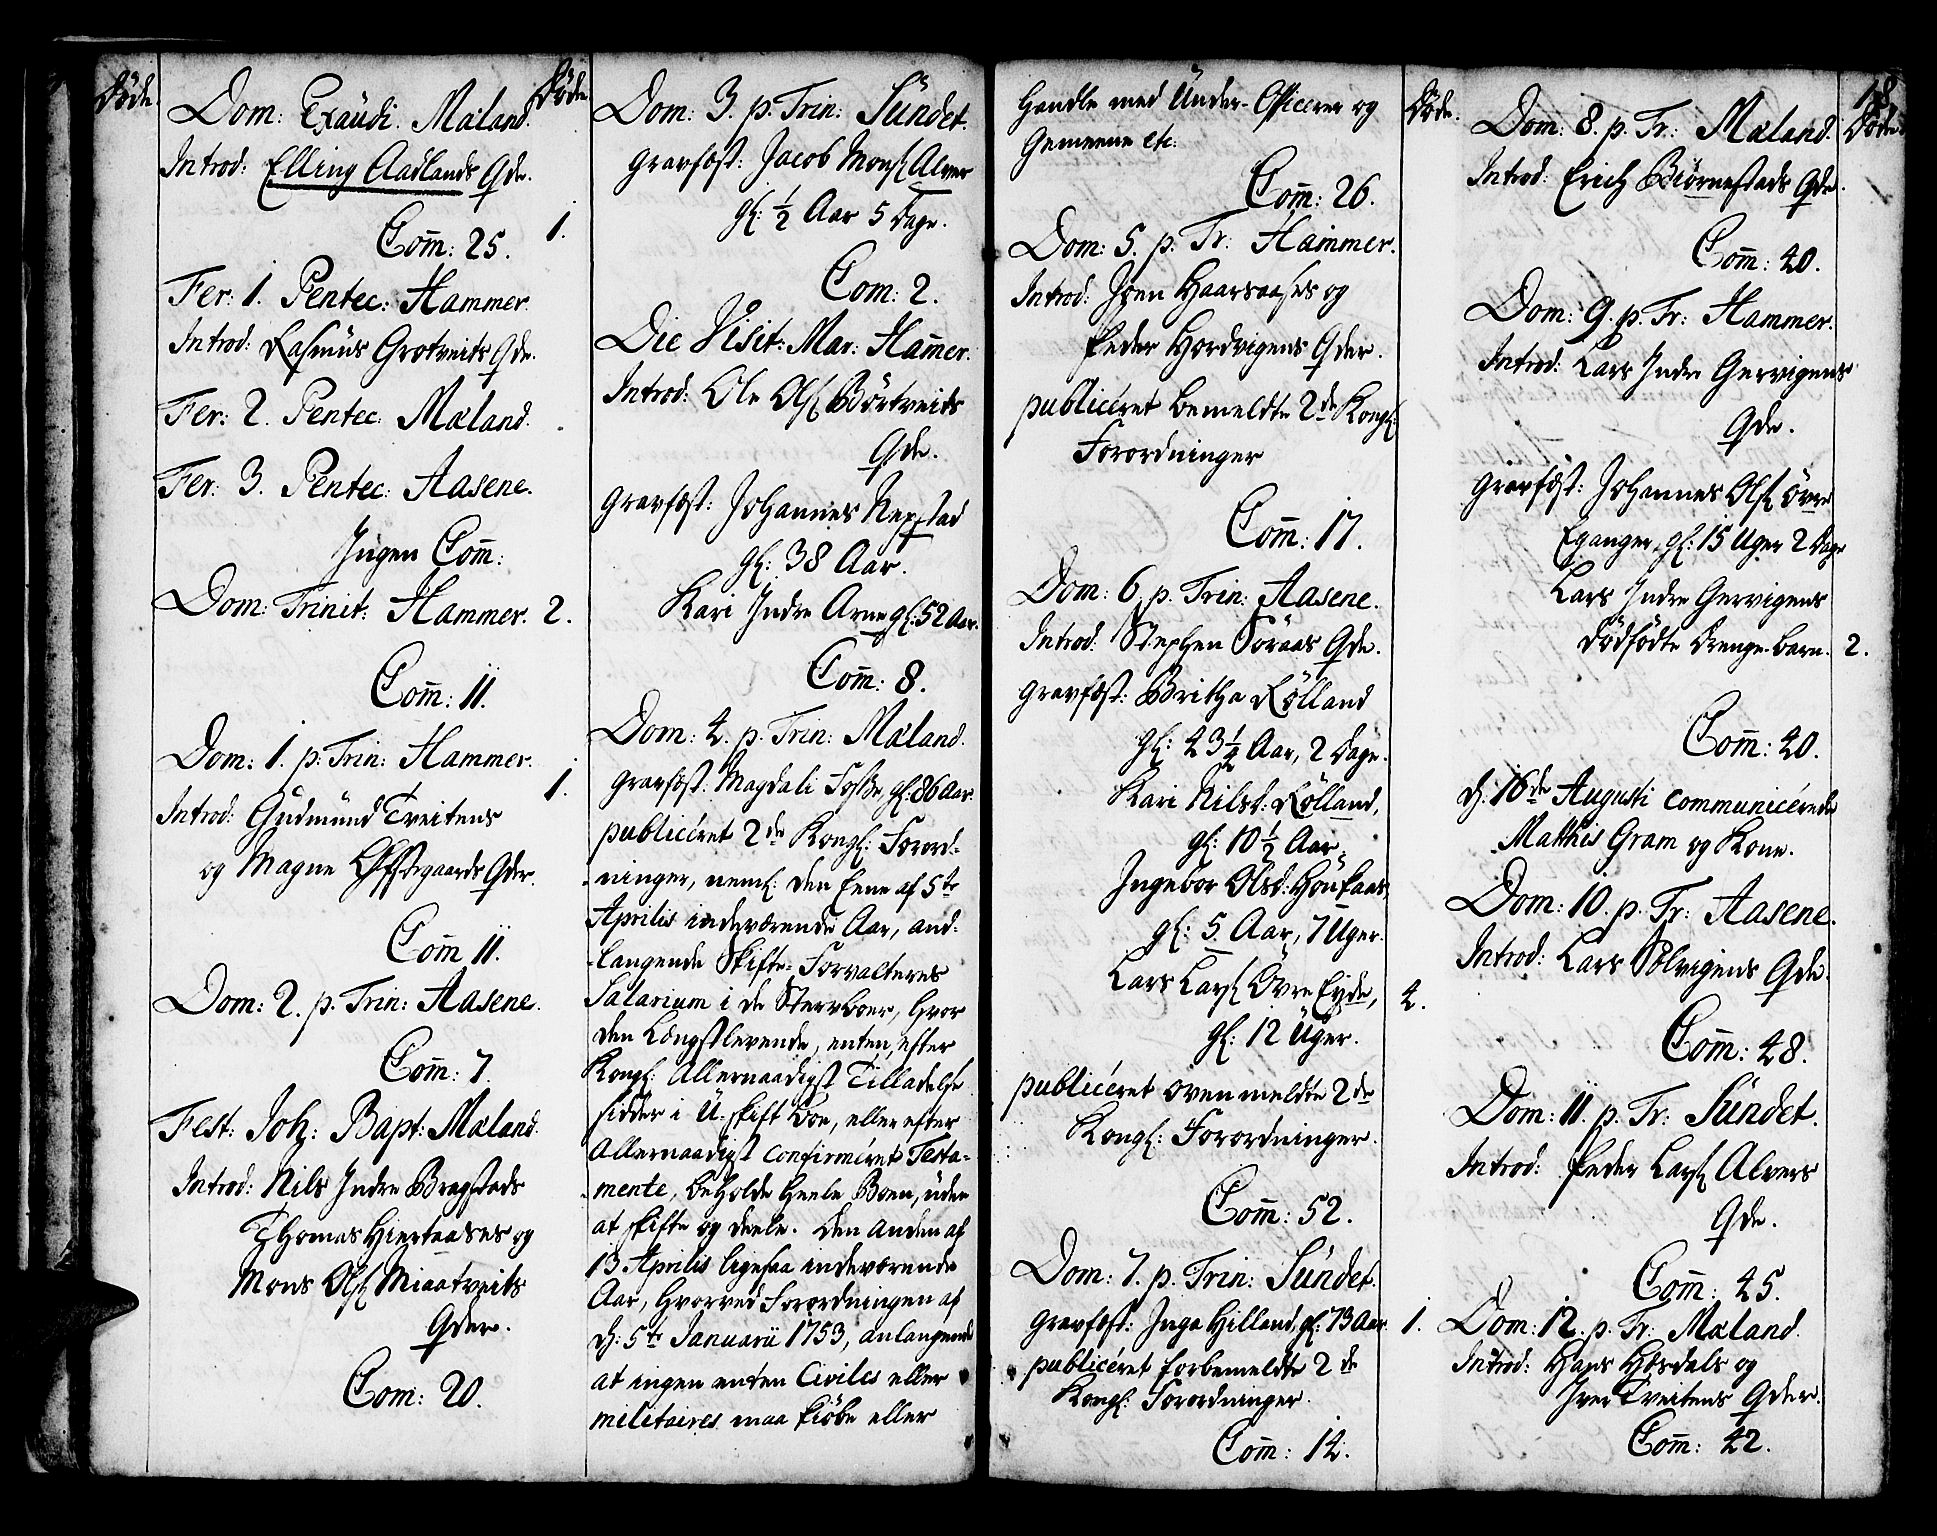 Döde.
Dom: Exaudi. Mæland.
Introd: Elling Aadlands Qde.
Com̄: 25.
Fer: 1. Pentec: Hammer.
Introd: Rasmüs Grotveits Qde.
Fer: 2. Pentec: Mæland.
Fer: 3. Pentec: Aasene.
Ingen Com̄:
Dom: Trinit: Hammer.
Com̄: 11.
Dom: 1. p: Trin: Hammer.
Introd: Gudmünd Tveitens
og Magne Giftegaards Qder.
Com̄ 11.
Dom: 2. p. Trin: Aasene.
Com̄: 7.
Fest: Joh: Bapt: Mæland.
Introd: Nils Indre Bragstads
Thomas Hiertaases og
Mons Ols: Miaatveits
Qder.
Com: 20.
Döde
1.
2.
1.
Dom: 3. p. Trin: Sündet.
Gravfæst: Jacob Mons: Alver
gl: ½ Aar 5 Dage.
Com: 2.
Die Visit: Mar: Ham̄er.
Introd: Ole Ols: Börtveits
Qde.
Gravfæst: Johannes Repstad
gl: 38 Aar.
Kari Indre Arne gl: 52 Aar.
Com̄: 8.
Dom: 4. p. Trin: Mæland.
Gravfæst: Magdali Fosse, gl: 86 Aar.
publicéret 2de Kongl: Forord-
ninger, neml: den Eene af 5te
Aprilis indeværende Aar, and-
langende Skifte-Forvalteres
Salarium i de Sterboer, hvor
den Længstlevende, enten, efter
Kongl: Allernaadigst Tilladelse
sidder i U-skift Boe, eller efter
Allernaadigst confirméret Testa-
mente, beholde heele Boen, üden
at skifte og deele. Den anden af
13 Aprilis ligesaa indeværende
Aar, hvorved Forordningen af
d: 5te Januarii 1753, anlangende
at ingen enten Civiles eller
militaires maa kiöbe eller
handle med Ünder-Officerer og
Gemeene etc:
Com̄: 26.
Dom: 5. p. Tr: Hammer.
Introd: Iven Haarsaases og
Peder Hordvigens Qder.
publicéret bemeldte 2de Kongl:
Forordninger
Com̄: 17.
Dom: 6. p. Trin: Aasene.
Introd: Stephen Söraas Qde.
Gravfæst: Britha Rölland
gl: 43¼ Aar, 2 Dage.
Kari Nilsd: Rölland,
gl: 10½ Aar.
Ingebor Olsd: Houkaas
gl: 5 Aar, 7 Uger.
Lars Lars: Övre Eyde,
gl: 12 Üger.
publicéret ovenmeldte 2de
Kongl: Forordninger.
Com̄: 52.
Dom: 7. p. Trin: Sündet.
Gravfæst: Inga Hilland, gl: 73 Aar.
publicéret forbemeldte 2de
Kongl: Forordninger.
Com̄: 14.
Döde.
4.
1.
Dom: 8. p. Tr: Mæland.
Introd: Erich Biörnestads Qde.
Com̄: 40.
Dom: 9. p. Tr: Hammer.
Introd: Lars Indre Gervigens
Qde.
Gravfæst: Johannes Ols: Övre
Eganger, gl: 15 Uger 2 Dage
Lars Indre Gervigens
dödfödte Drenge-Barn.
Com̄: 40.
d: 16de Augusti communicérede
Mathis Gram og Kone.
Dom: 10. p. Tr: Aasene.
Introd: Lars Sölvigens Qde.
Com̄: 48.
Dom: 11 p. Tr: Sündet.
Introd: Peder Lars: Alvers
Qde.
Com̄: 45.
Dom: 12. p. Tr: Mæland.
Introd: Hans Hærdals og
Iver Tveitens Qder.
Com̄: 42.
18.
Döde
2.